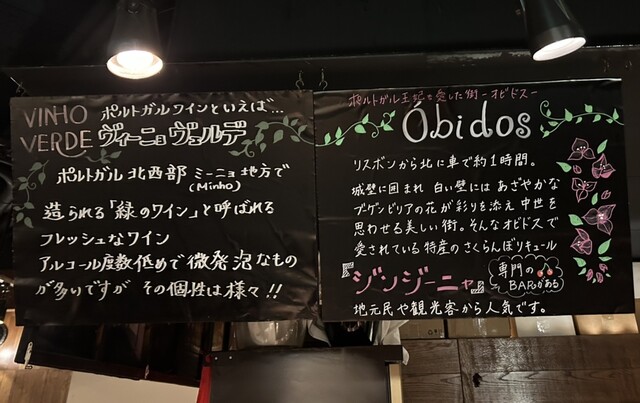 VINHO
VERDE
ポルトガルワインといえば...
ヴィーニョヴェルデ
ポルトガル北西部 ミーニョ地方で
(Minho)
造られる「緑のワイン」と呼ばれる
フレッシュなワイン
アルコール度数低めで微発泡なもの
が多いですが その個性は様々!!
ポルトガル王妃も愛した街 -オビドス-
Óbidos
リスボンから北に車で約1時間。
城壁に囲まれ 白い壁には あざやかな
ブーゲンビリアの花が彩りを添え 中世を
思わせる美しい街。そんなオビドスで
愛されている 特産のさくらんぼリキュール
『ジンジーニャ』
専門の
BARもある
地元民や観光客から人気です。